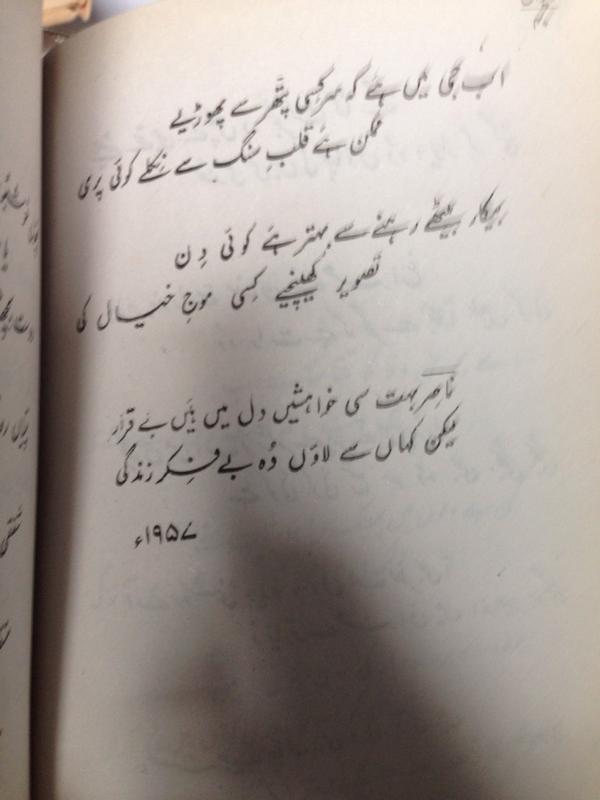 اب جی میں ہے کہ سر کسی پتھر سے پھوڑیے
ممکن ہے قلبِ سنگ سے نکلے کوئی پری
بیکار بیٹھے رہنے سے بہتر ہے کوئی دِن
تصویر کھینچیے کِسی موجِ خیال کی
ناصر بہت سی خواہشیں دل میں ہیں بے قرار
لیکن کہاں سے لاؤں وُہ بے فِکر زندگی
۱۹۵۷ء